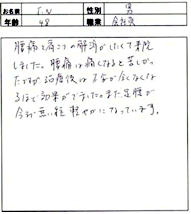 お名前 I.N 性別 男
年齢 48 職業 会社員
腰痛と肩こりの解消がしたくて来院
しました。腰痛は痛くなると苦しかっ
たですが治療後は不安が全くなくな
るほど効果がでました。また足腰が
今迄無い程軽やかになっています。